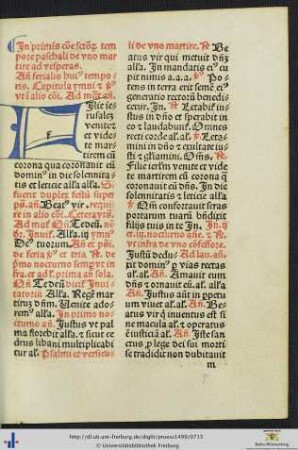 In primis cõe sctoꝝ. tem
pore paschali de vno mar
tire ad vesperas.
An ferialis hui⁹ tempo
ris. Capitula ymni ⁊ ꝟ
vt ĩ alio cõi. Ad mgt añ.
Filie ie
rusalez
venite ⁊
et vide
te mar
tirem cũ
corona qua coronauit eũ
domin⁹ in die solennita
tis et leticie alľa. Alľa. Si
fuerit duplex festũ super
ps. añ. Beat⁹ vir. require
in alio cõi. Cetera vt sͣ.
Ad mat̃. añ. Te deũ. ut
sͣ. Inuit. Alľa. ymn⁹
Deus tuorum. Añ et psi.
de feria ꝟ et tria ꝶ. de
prmo nocturno semper in fra
et ad ľ. prima añ sola.
Añ Te deũ dicit Inui
tatoriũ Alľa. Regẽ mar
tirum dñm. Uenite ado
rem⁹. alľa. In primo no
cturno añ. Iustus vt pal
ma florebit alľa. ⁊ sicut ce
drus libani multiplicabi
tur al. Psalmi et versicu
li de vno martire. ꝶ Be
atus vir qui metuit dñz
alľa. In mandatis ei⁹ cu
pit nimis a.a.a. ꝟ Po
tens in terra erit semẽ ei⁹
generatio rectorũ benedi
cetur. In. ꝶ Letabit̃ iu
stus in dño et sperabit in
eo ⁊ laudabunt̃. Omnes
recti corde al. al. ꝟ Leta
mini in dño ⁊ exultate iu
sti ⁊ gľiamini. Oms. ꝶ
Filie ierľm venite et vide
te martirem cũ corona q̃
coronauit eũ dñs. In die
solennitatis ⁊ leticie alľa
alľa. ꝟ Qm̃ confortauit seras
portarum tuarũ bñdixit
filijs tuis in te. In. In ij
⁊ iij. nocturno añe. ⁊ ꝶ
vt infra de vno cõfessore.
Iustũ dedu. Ad lau. añ.
xit domin⁹ ꝑ vias rectas
al. al. Añ. Amauit eum
dñs ⁊ ornauit eũ. al. alľa
Añ. Iustus aũt in ꝑpetu
um viuet al. al. Añ. Be
atus vir q̃ inuentus est si
ne macula al. ⁊ operatus
ẽ iusticiã al. Añ. Iste san
ctus ꝓ lege dei sui morti
se tradidit non dubitauit
m
http://dl.ub.uni-freiburg.de/diglit/proess1499/0713
© Universitätsbibliothek Freiburg
Baden-Württemberg